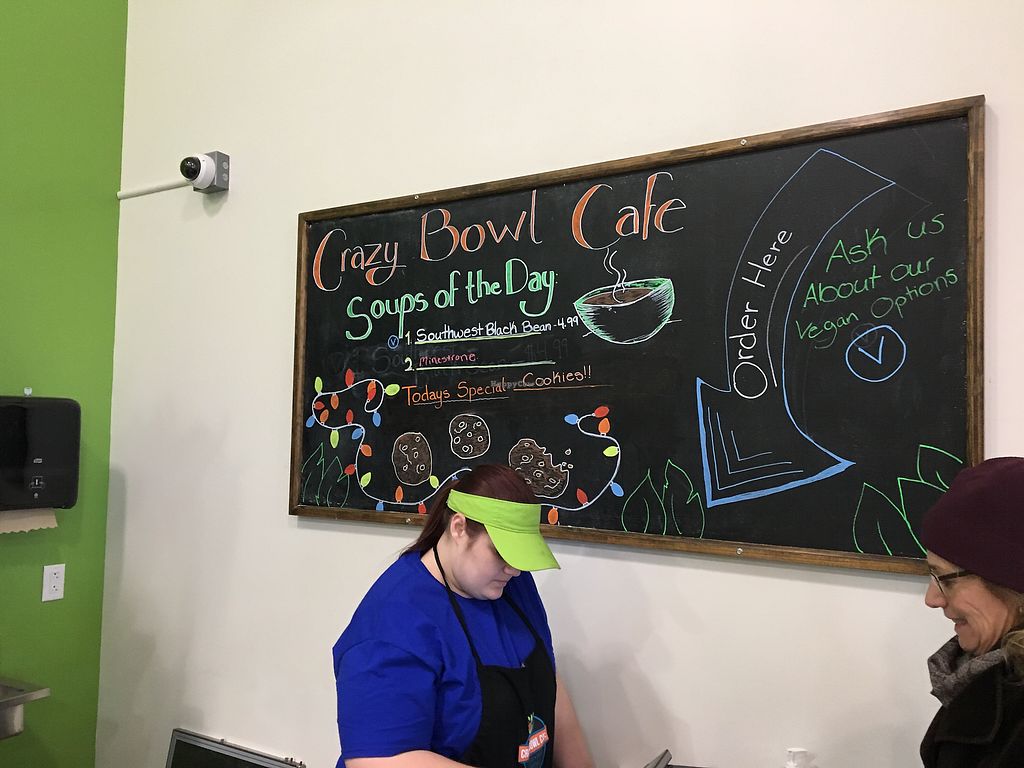 Crazy Bowl Cafe
Soups of the Day
V 1. Southwest Black Bean - 4.99
2. Minestrone
Todays Special Cookies!!
HappyCow
Order Here
Ask us
About our
Vegan Options
V